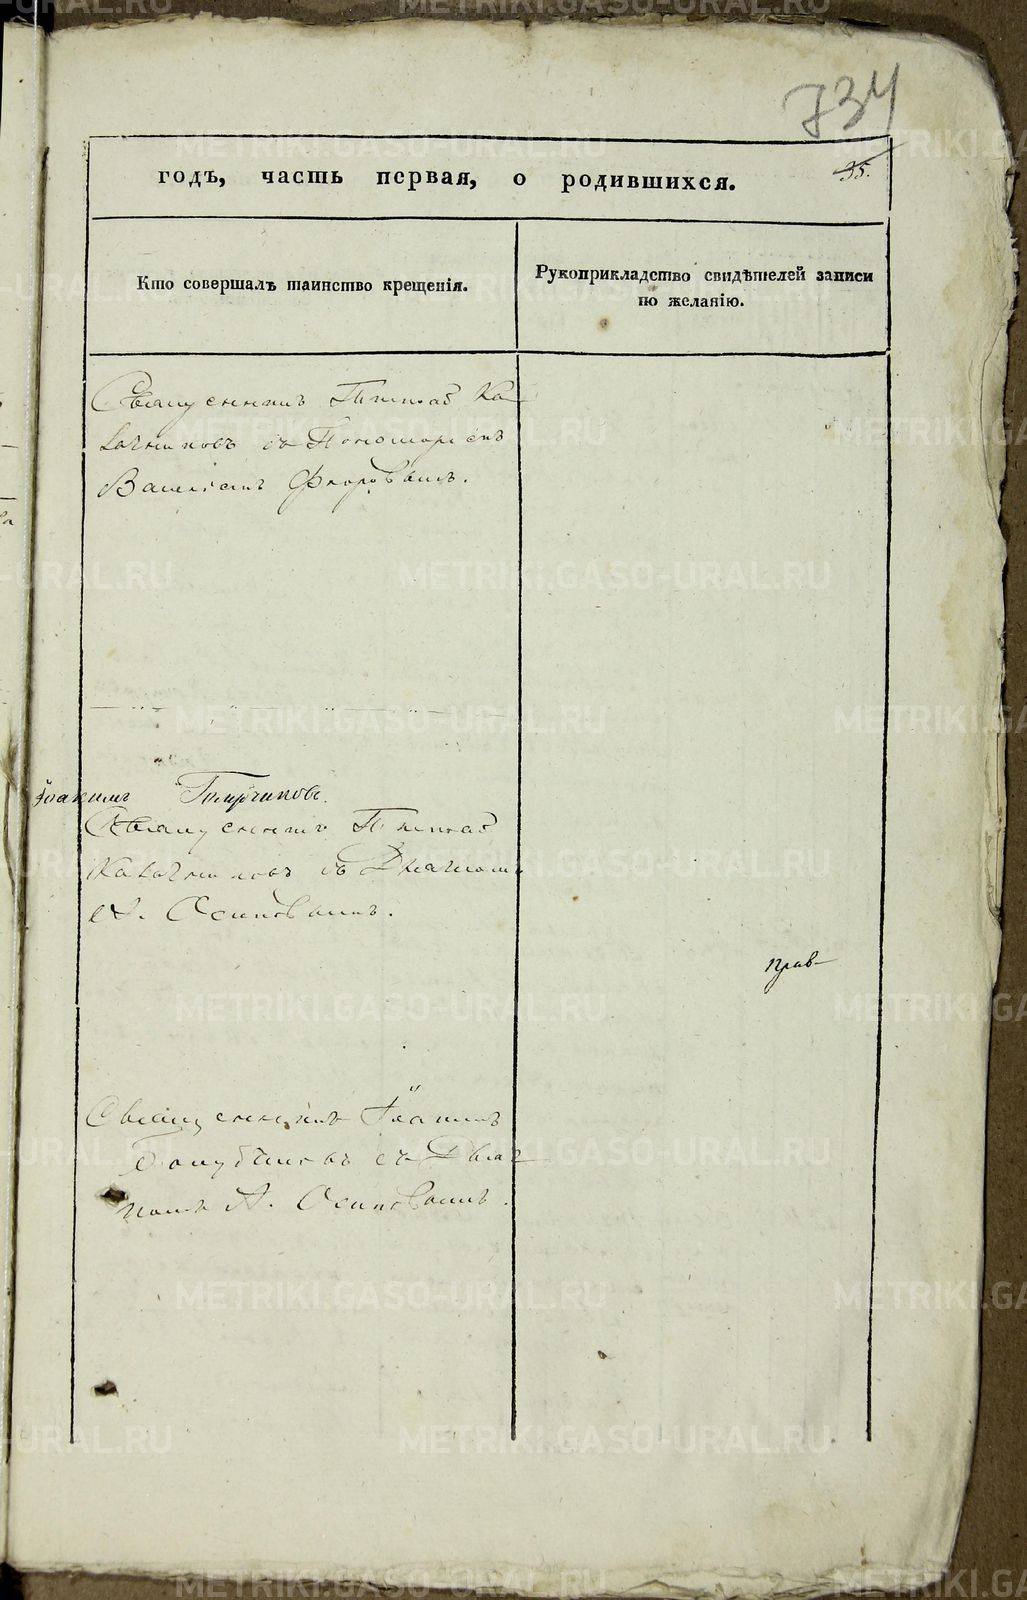 734
35.
годъ, часть первая, о родившихся.
Кто совершалъ таинство крещенія.
Рукоприкладство свидѣтелей записи
по желанію.
Священникъ Ка-
съ Пономаремъ
Василіемъ Флоровымъ.
Іоакимъ
Священникъ
съ Дьячкомъ
А. Осиповымъ.
прав-
Священникъ Іоакимъ
съ Дьяч-
комъ А. Осиповымъ.
METRIKI.GASO-URAL.RU